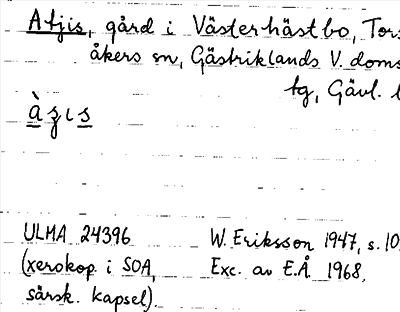 Atjis, gård i Västerhästbo, Tors
åkers sn, Gästriklands V. doms
tg, Gävl. l
àʒıs
ULMA 24396
(xerokop. i SOA,
särsk. kapsel).
W. Eriksson 1947, s. 10
Exc. av E.Å. 1968.